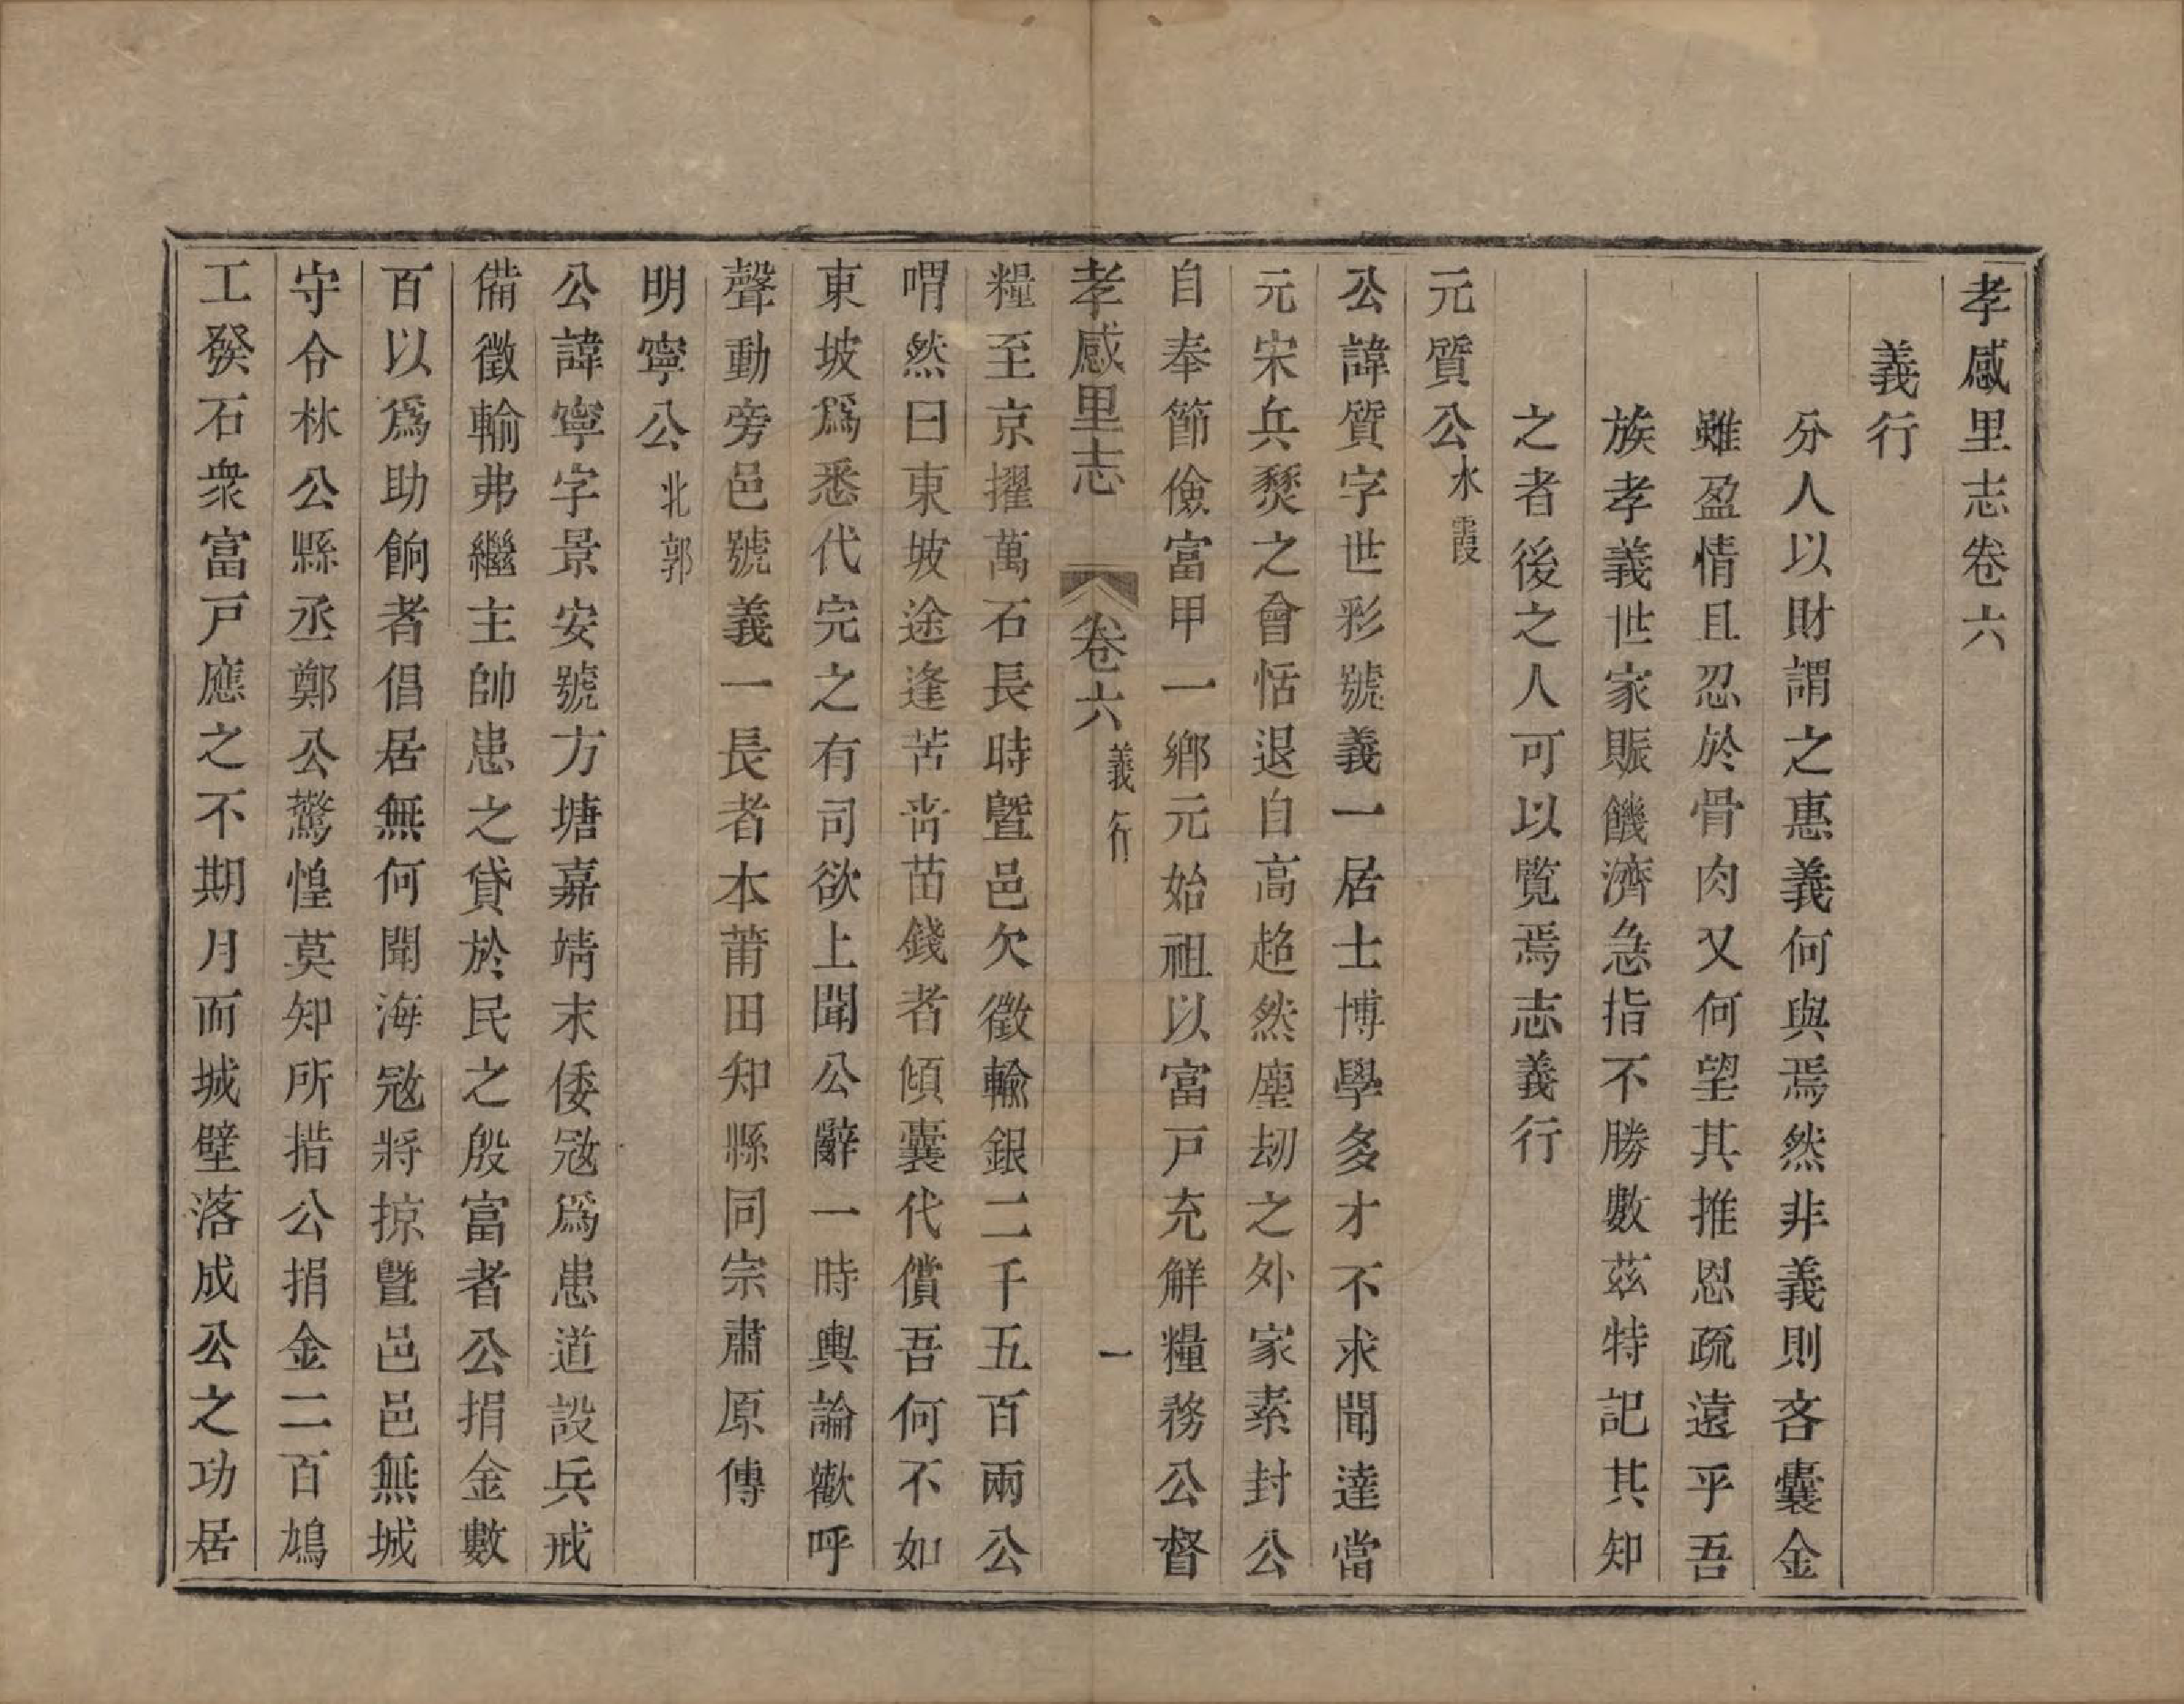 孝感里志卷六
義行
分人以財謂之惠義何與焉然非義則吝囊金
雖盈情且忍於骨肉又何望其推恩疏遠乎吾
族孝義世家賑饑濟急指不勝數茲特記其知
之者後之人可以覽焉志義行
元質公水霞
公諱質字世彩號義一居士博學多才不求聞達當
元宋兵燹之會恬退自高趋然塵刼之外家素封公
自奉節儉富甲一鄉元始祖以富戸充解糧務公督
孝感里志 卷六 義行 一
糧至京擢萬石長時曁邑欠徵輸銀二千五百兩公
喟然曰東坡途逢苦啇苗錢者傾囊代償吾何不如
東坡爲悉代完之有司欲上聞公辭一時輿論歡呼
聲動旁邑號義一長者本莆田知縣同宗肅原傳
明寧公北郭
公諱寧字景安號方塘嘉靖末倭宼爲患道設兵戒
備徵輸弗繼主帥患之貸於民之殷富者公捐金數
百以爲助餉者倡居無何聞海宼將掠曁邑邑無城
守令林公縣丞鄭公驚惶莫知所措公捐金二百鳩
工發石衆富戸應之不期月而城壁落成公之功居